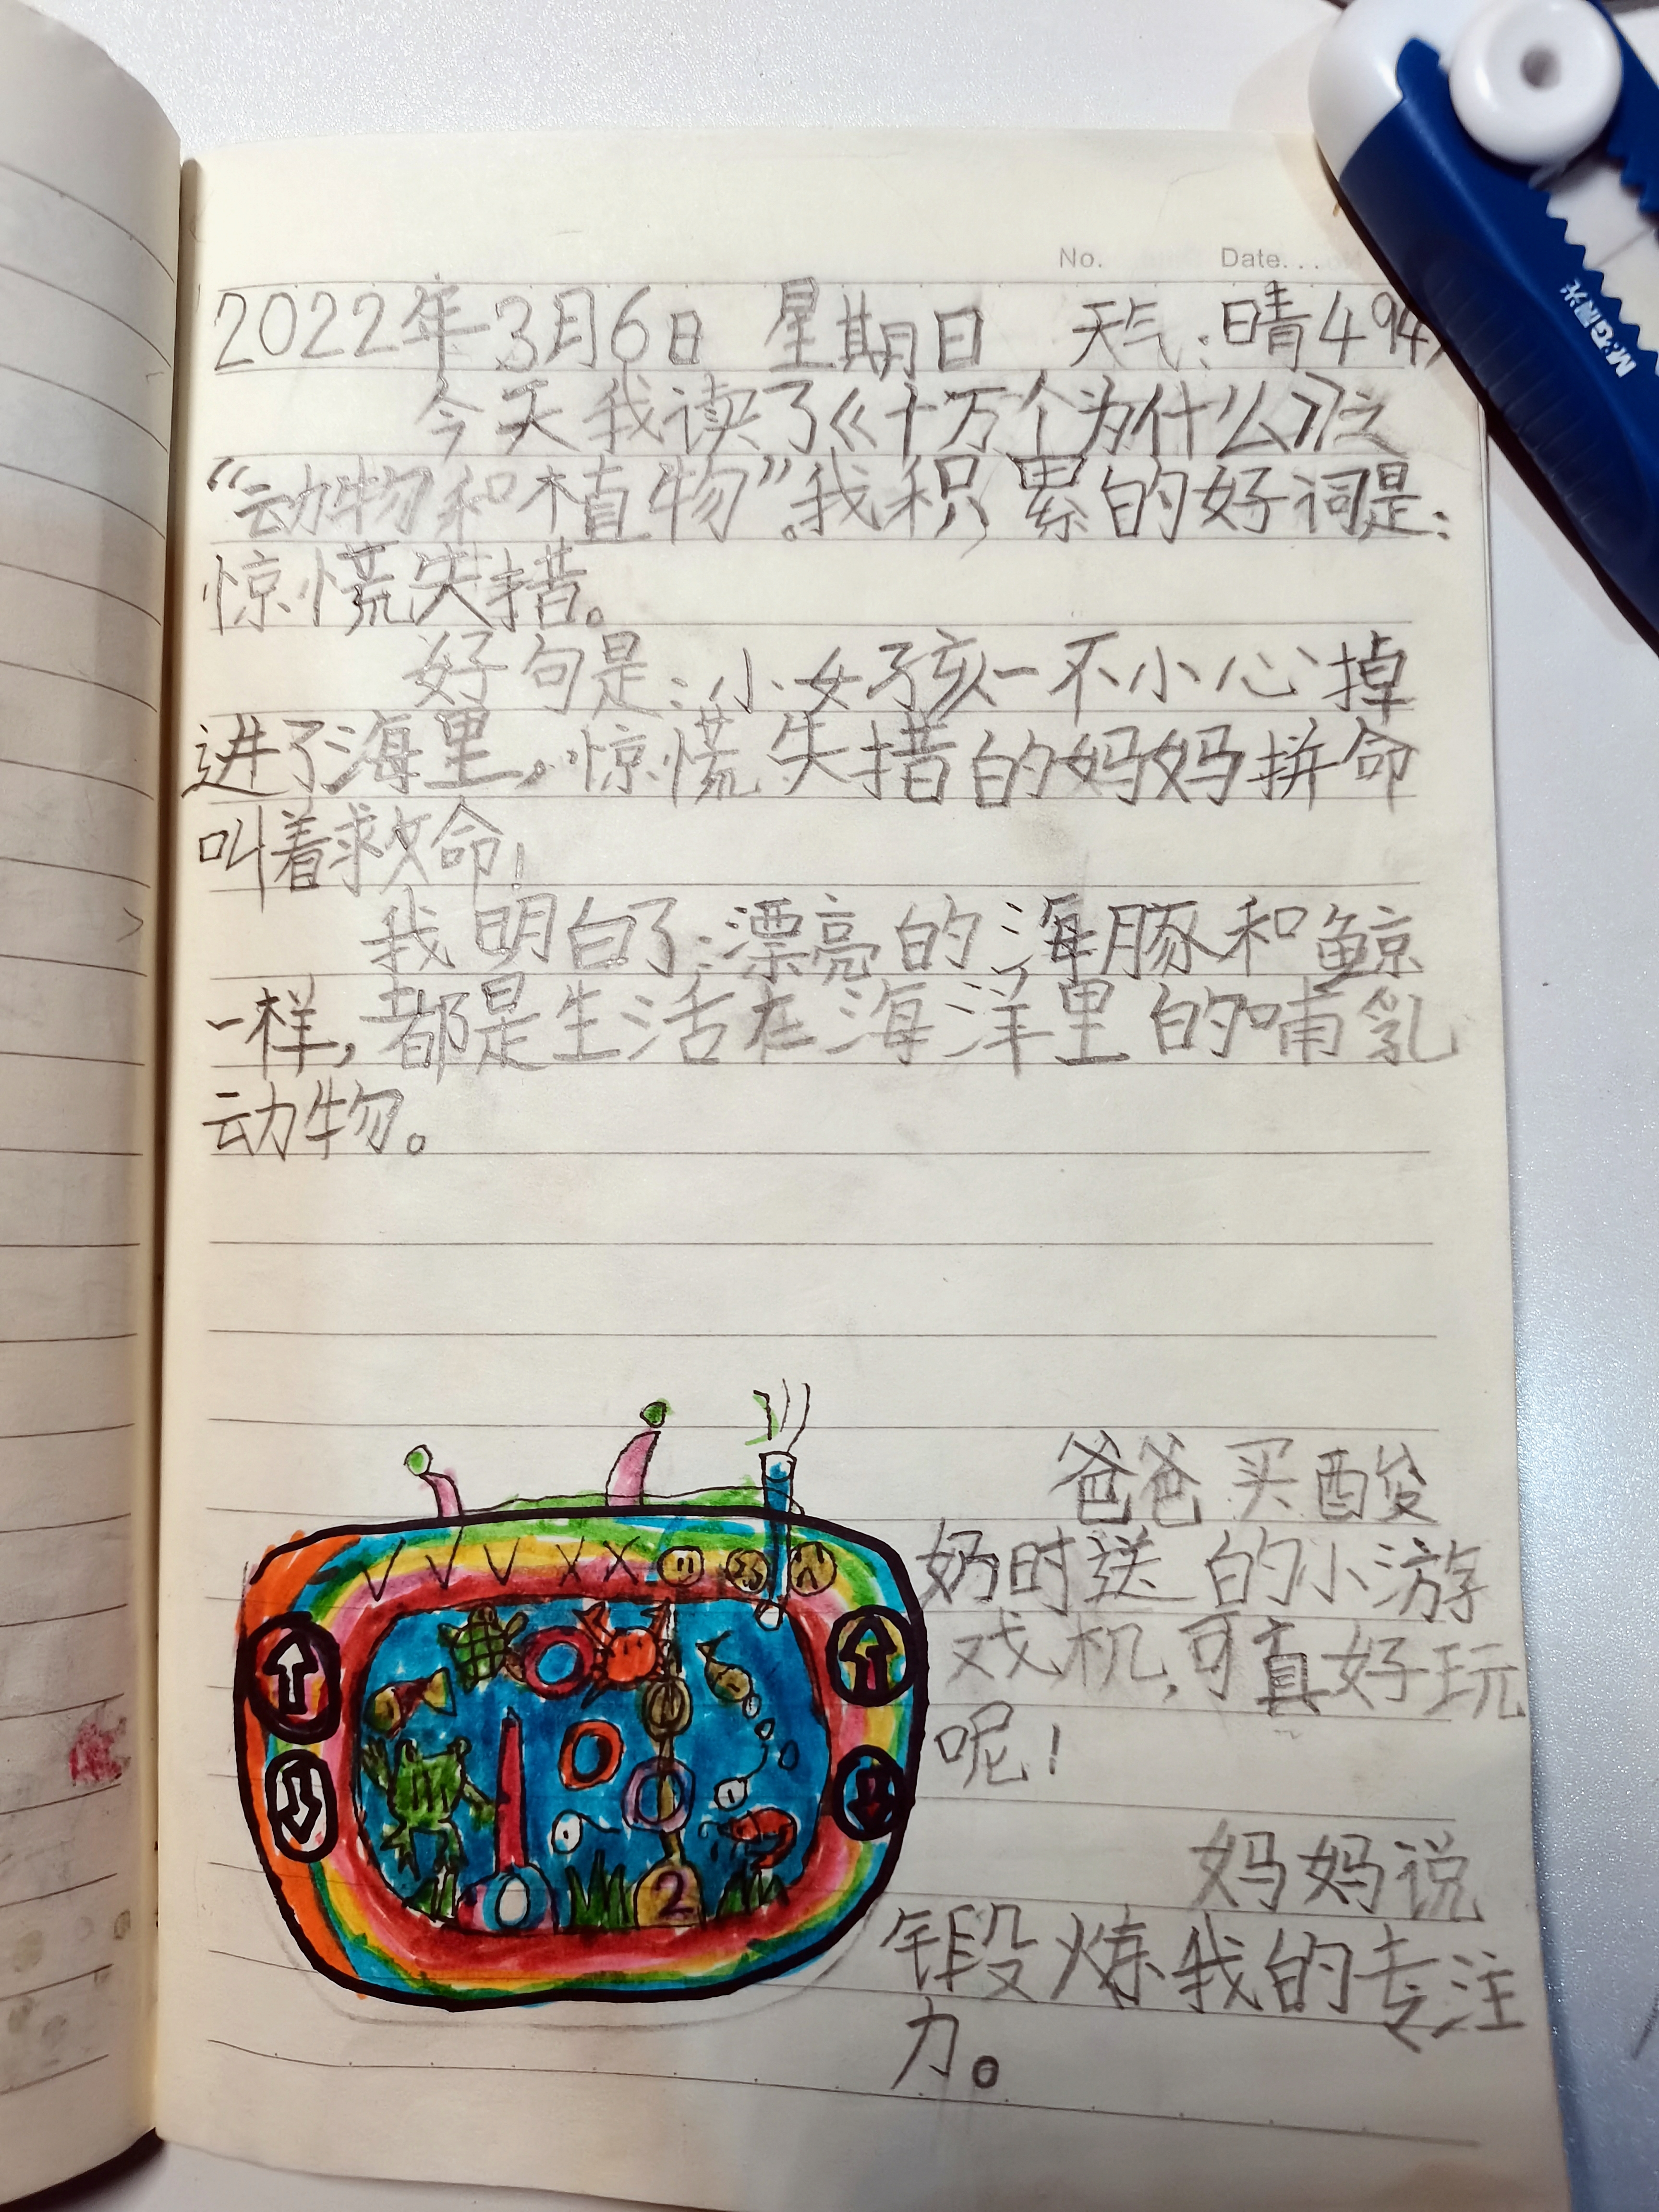 No. Date...
2022年3月6日 星期日 天气:晴494
今天我读了《十万个为什么》之
“动物和植物”。我积累的好词是:
惊慌失措。
好句是:小女孩一不小心掉
进了海里。惊慌失措的妈妈拼命
叫着救命!
我明白了:漂亮的海豚和鲸
一样,都是生活在海洋里的哺乳
动物。
爸爸买酸
奶时送的小游
戏机,可真好玩
呢!
妈妈说
锻炼我的专注
力。
2
M&G晨光